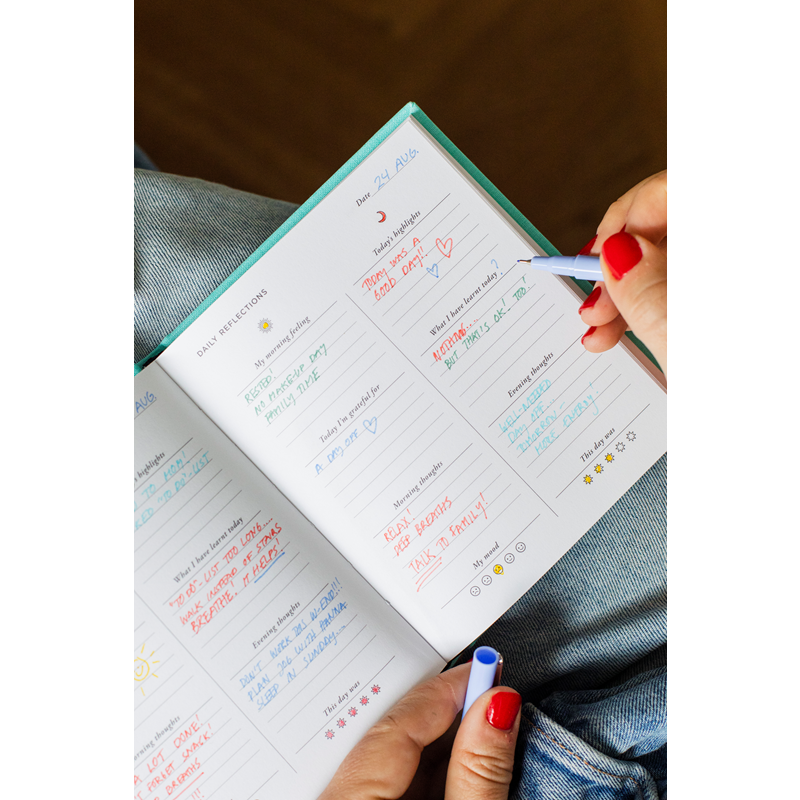 AUG
highlights
TO MOM!
"TO DO"-LIST
What I have learnt today
"TO DO"-LIST TOO LONG....
WALK INSTEAD OF STAIRS
BREATHE, IT HELPS!
Evening thoughts
DON'T WORK THIS W-END!!!
PLAN WITH HANNA
SLEEP IN SUNDAY....
This day was
thoughts
A LOT DONE!
FORGET SNACK!
BREATHS
DAILY REFLECTIONS
My morning feeling
RESTED!
NO MAKE-UP DAY
FAMILY TIME
Today I'm grateful for
A DAY OFF
Morning thoughts
RELAX!
DEEP BREATHS
TALK TO FAMILY!
My mood
Date 24 AUG.
Today's highlights
TODAY WAS A
GOOD DAY!!
What I have learnt today?
NOTHING....
BUT THAT'S OK! TOO!
Evening thoughts
WELL-NEEDED
DAY OFF...
TOMORROW
MORE ENERGY!
This day was